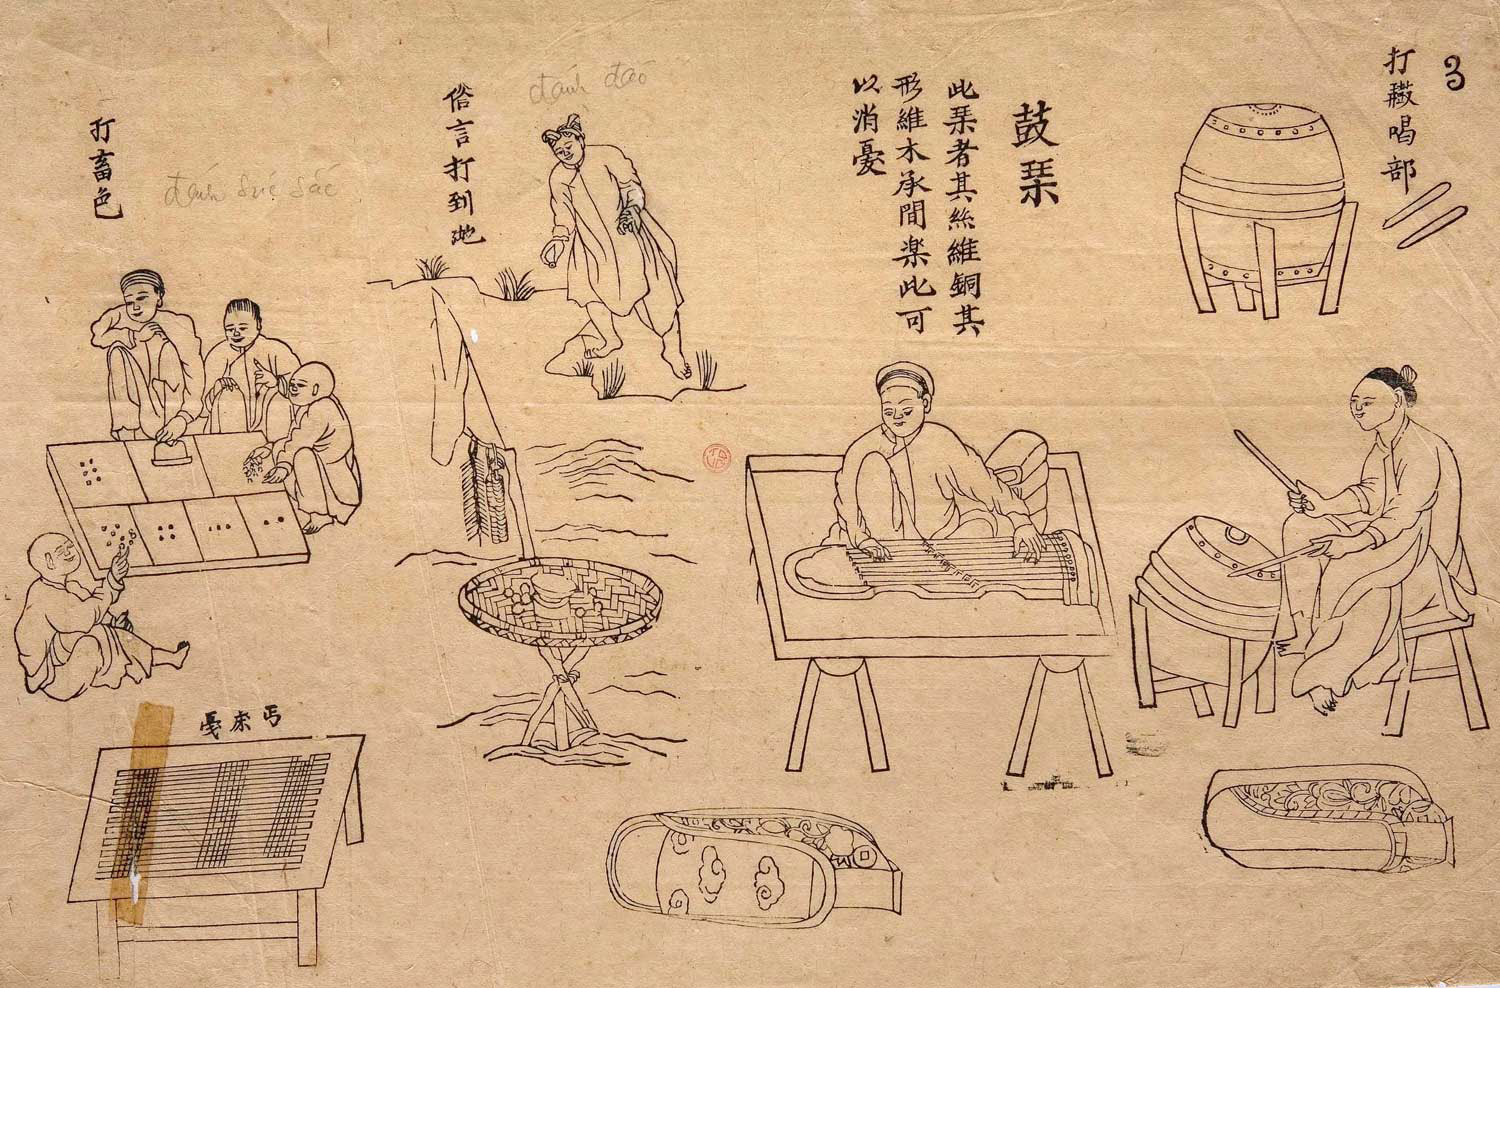 打𢫝喝部
鼓琹
此琹者其絲維銅其
形維木承間楽此可
以消憂
đánh đáo
俗言打到地
打畜色
đánh súc sắc
丐床戞